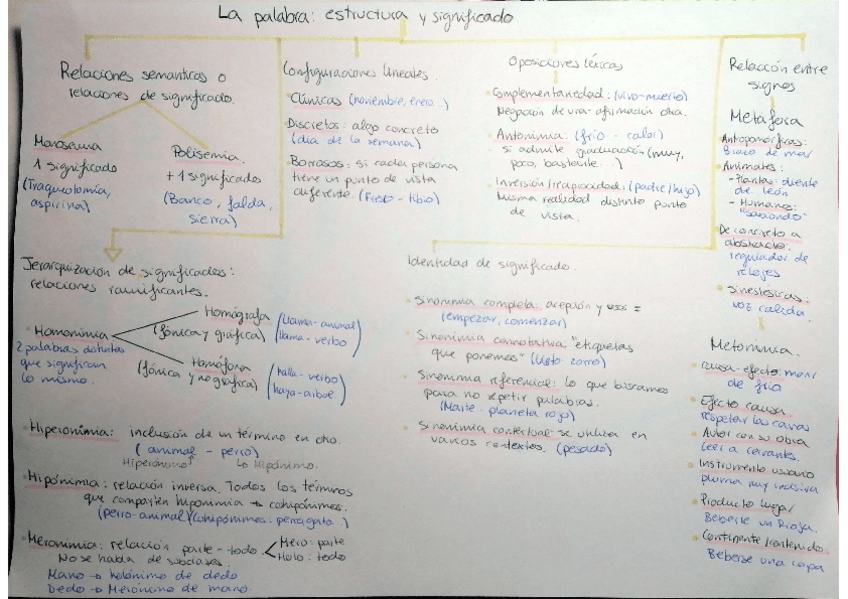 La palabra: estructura y significado
Relaciones semanticas o
relaciones de significado.
Monosemia
1 significado
(Traqueotomía,
aspirina)
Polisemia.
+ 1 significados
(Banco, falda,
sierra)
Configuraciones lineales.
Clínicas (noviembre, enero...)
Discretos: algo concreto
(día de la semana)
Borrosos: si cada persona
tiene un punto de vista
diferente. (Fresco - tibio)
Oposiciones léxicas
Complementariedad: (vivo-muerto)
Negación de una afirmación otra.
Antonimia: (frío - calor)
si admite graduación (muy,
poco, bastante...)
Inversión/reciprocidad: (padre/hijo)
Misma realidad distinto punto
de vista.
Relación entre
signos
Metáfora
Antropomórficas:
Brazo de mar
Animales:
- Plantas: diente
de león
- Humanos:
De concreto a
abstracto:
regulador de
relojes
Sinestésicas:
voz calida.
Metonimia.
causa-efecto: morir
de frío
Efecto causa
respetar las canas
Autor con su obra
Leer a Cervantes.
Instrumento usuario
pluma muy incisiva
Producto lugar
Beberse un Rioja.
Continente/contenido.
Beberse una copa
Jerarquización de significados:
relaciones ramificantes.
Homonimia
2 palabras distintas
que significan
lo mismo.
Homógrafa
(fónica y gráfica)
(llama-animal
llama-verbo)
Homófona
(fónica y no gráfica)
(halla-verbo
haya-arbol)
Hiperonimia: inclusión de un término en otro.
(animal - perro)
Hiperónimo Lo Hipónimo.
Hiponimia: relación inversa. Todos los términos
que comparten hiponimia → cohipónimos.
(perro-animal)(cohipónimos: perro, gato..)
Meronimia: relación parte-todo. < Mero: parte
Holo: todo
No se habla de subclases.
Mano → holónimo de dedo
Dedo → Merónimo de mano.
Identidad de significado.
Sinonimia completa: acepción y usos =
(empezar, comenzar)
Sinonimia connotativa "etiquetas
que ponemos" (listo zorro)
Sinonimia referencial: lo que buscamos
para no repetir palabras.
(Marte - planeta rojo)
Sinonimia contextual - se utiliza en
varios contextos. (pesado)